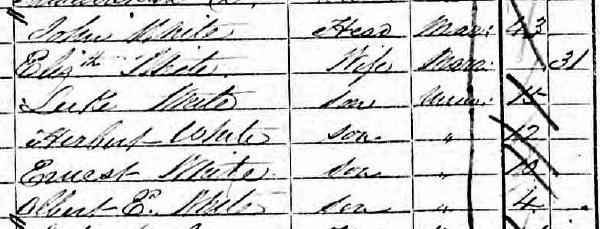 John White Head Mar: 43
Eliz.th White Wife Mar: 31
Luke White Son Unm: 15
Herbert White Son " 12
Ernest White Son " 10
Albert E. White Son " 4